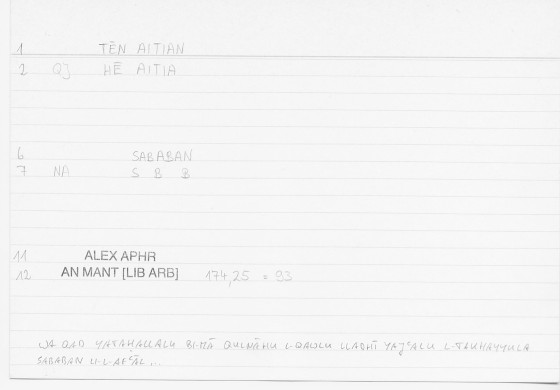 1 TĒN AITIAN
2 QJ HĒ AITIA
6 SABABAN
7 NA S B B
11 ALEX APHR
12 AN MANT [LIB ARB] 174,25 = 93
WA QAD YATAHALLALU BI-MĀ QULNĀHU L-QAWLU LLADHĪ YAJʿALU L-TAKHAYYULA
SABABAN LI-L-AFʿĀL...